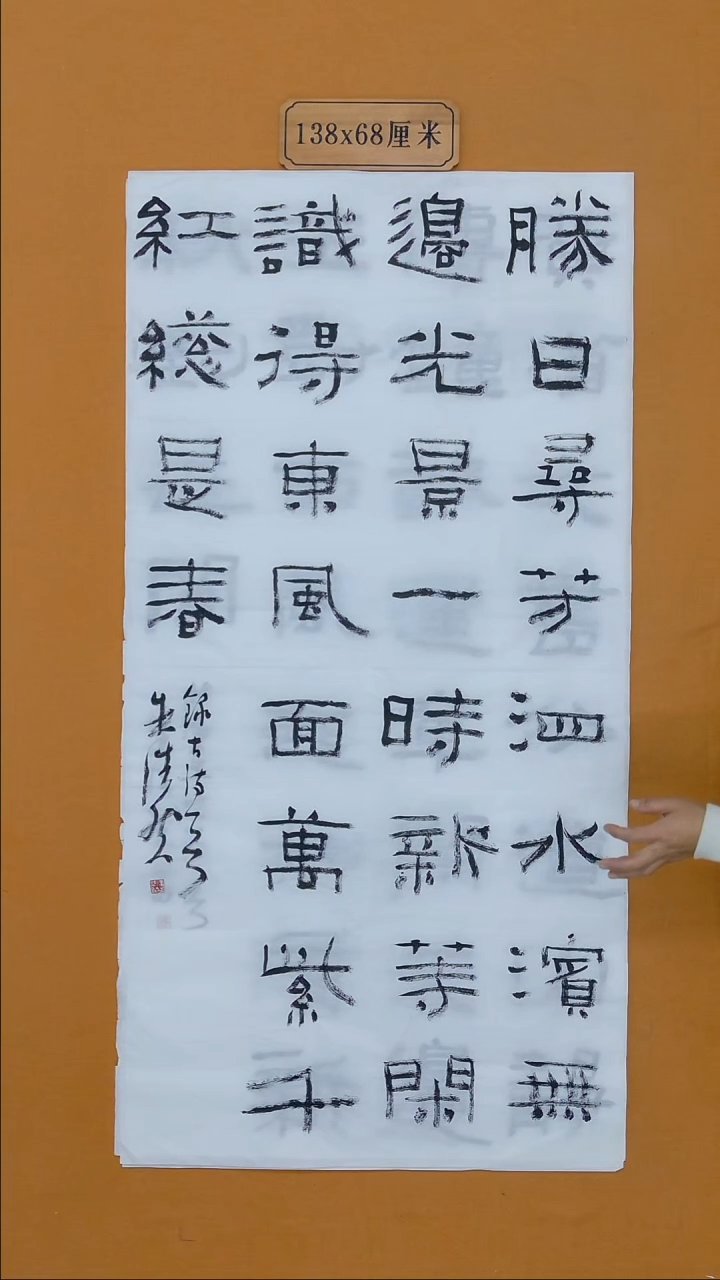 138x68厘米
勝日尋芳泗水濱無
邊光景一時新等閑
識得東風面萬紫千
紅總是春
錄古詩